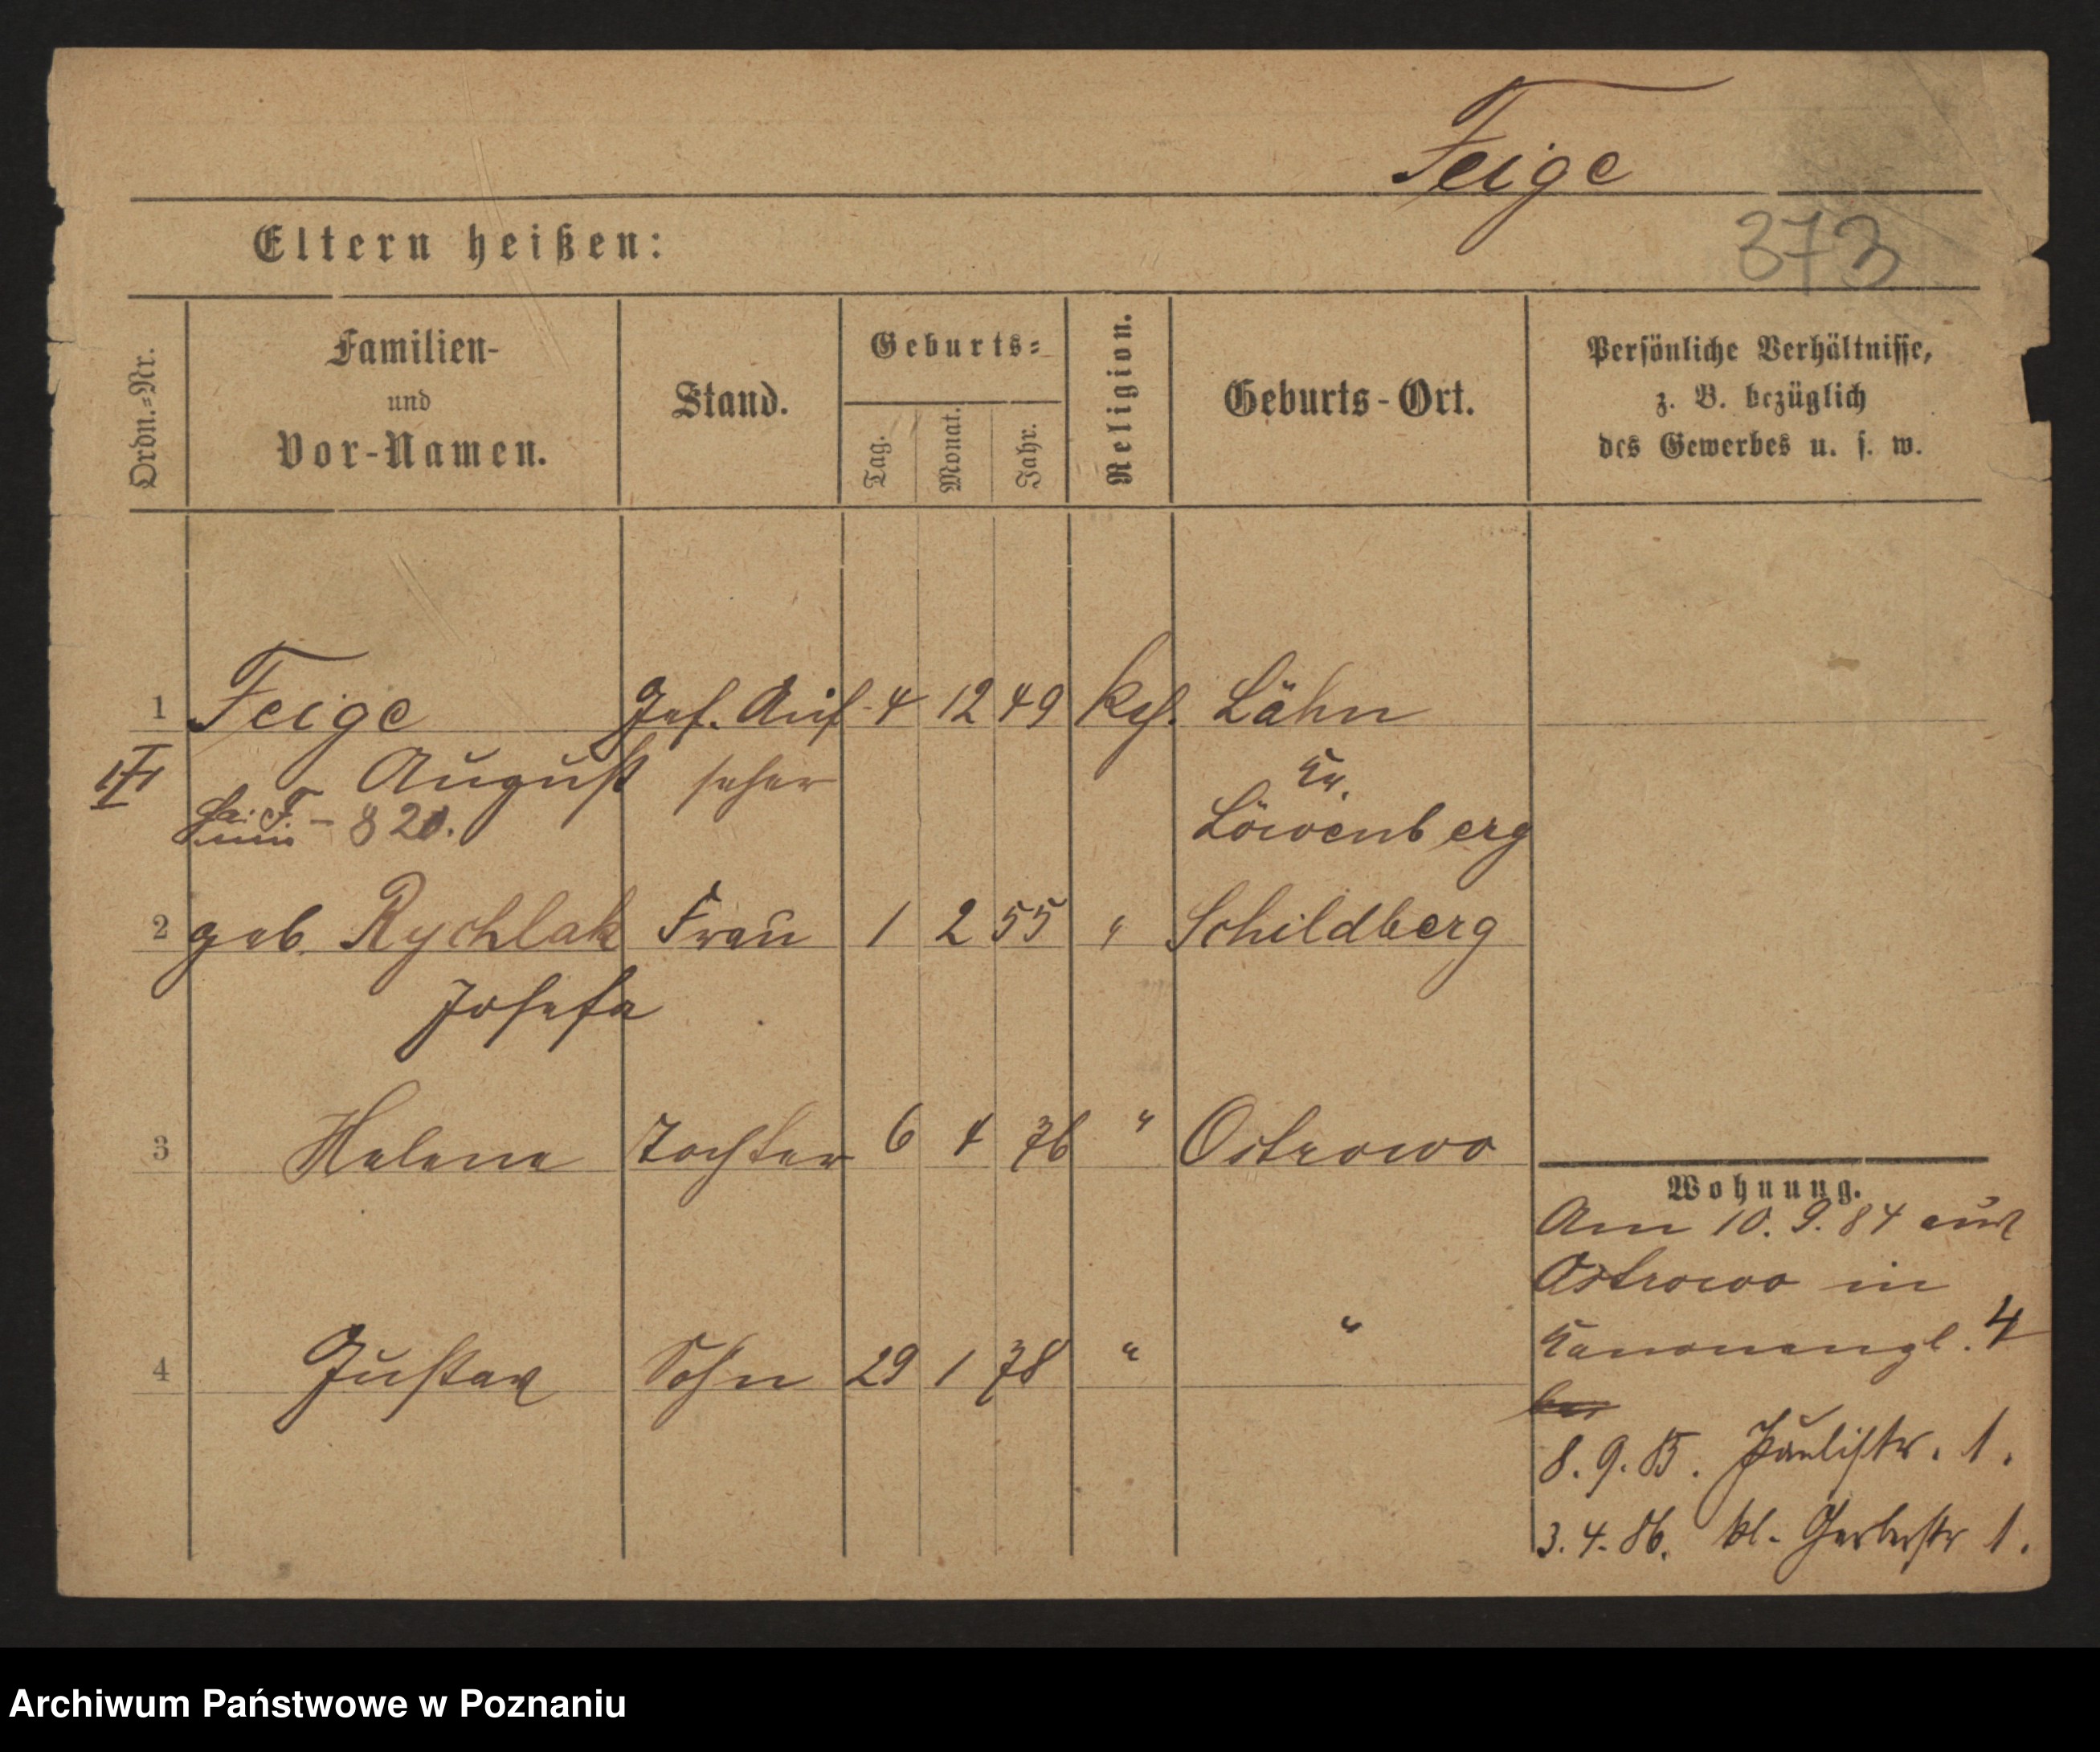 Feige
373
Eltern heißen:
Ordn.-Nr.
Familien-
und
Vor-Namen.
Stand.
Geburts-
Tag.
Monat.
Jahr.
Religion.
Geburts-Ort.
Persönliche Verhältnisse,
z. B. bezüglich
des Gewerbes u. s. w.
1 Feige Gef. Auf- 4 12 49 kath. Lähn
August seher Kr.
F. – 820. Löwenberg
2 geb. Rychlak Frau 1 2 55 " Schildberg
Josefa
3 Helene Tochter 6 4 76 " Ostrowo
4 Gustav Sohn 29 1 78 " "
Wohnung.
Am 10. 9. 84 aus
Ostrowo in
Kanonengl. 4
8. 9. 85. Paulistr. 1.
3. 4. 86. kl. Gerberstr 1.
Archiwum Państwowe w Poznaniu